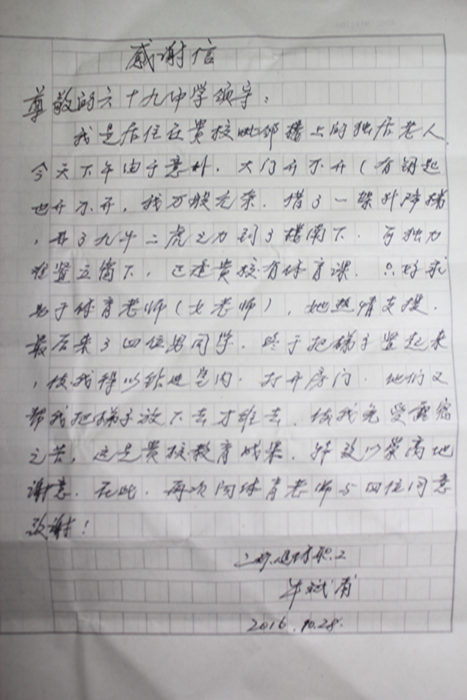 感谢信
尊敬的六十九中学领导：
我是居住在贵校毗邻楼上的独居老人
今天下午由于意外，大门开不开（有钥匙
也开不开，我万般无奈，借了一架升降梯
，费了九牛二虎之力到了楼南下，可独力
难竖立简下，这是贵校有体育课，只好求
助于体育老师（女老师），她热情支援，
最后来了四位男同学，终于把梯子竖起来
，使我得以钻进室内，打开房门，他们又
帮我把梯子放下去才离去，使我免受露宿
之苦，这是贵校教育成果，特致以崇高地
谢意，在此，再次向体育老师与四位同意
致谢！
退休职工
2016.10.28.